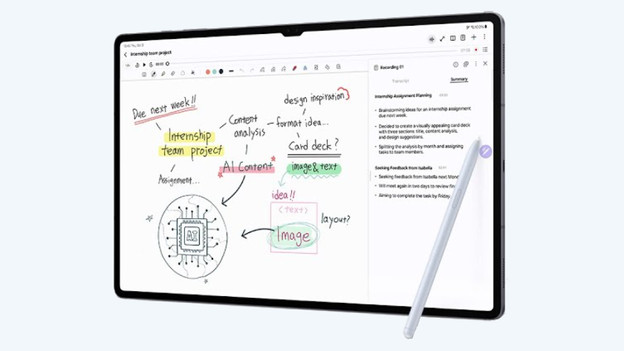 Internship team project
Recording 01
Transcript
Summary
Due next week!!
Internship
team project
Assignment...
Content
analysis
AI Content
design inspiration
format idea...
Card deck?
image & text
idea!!
(text)
Image
layout?
AI
Internship Assignment Planning
Brainstorming ideas for an internship assignment
due next week.
Decided to create a visually appealing card deck
with three sections: title, content analysis,
and design suggestions.
Splitting the analysis by month and assigning
tasks to team members.
Seeking Feedback from Isabella
Seeking feedback from Isabella next
Will meet again in two days to review
Aiming to complete the task by Friday.